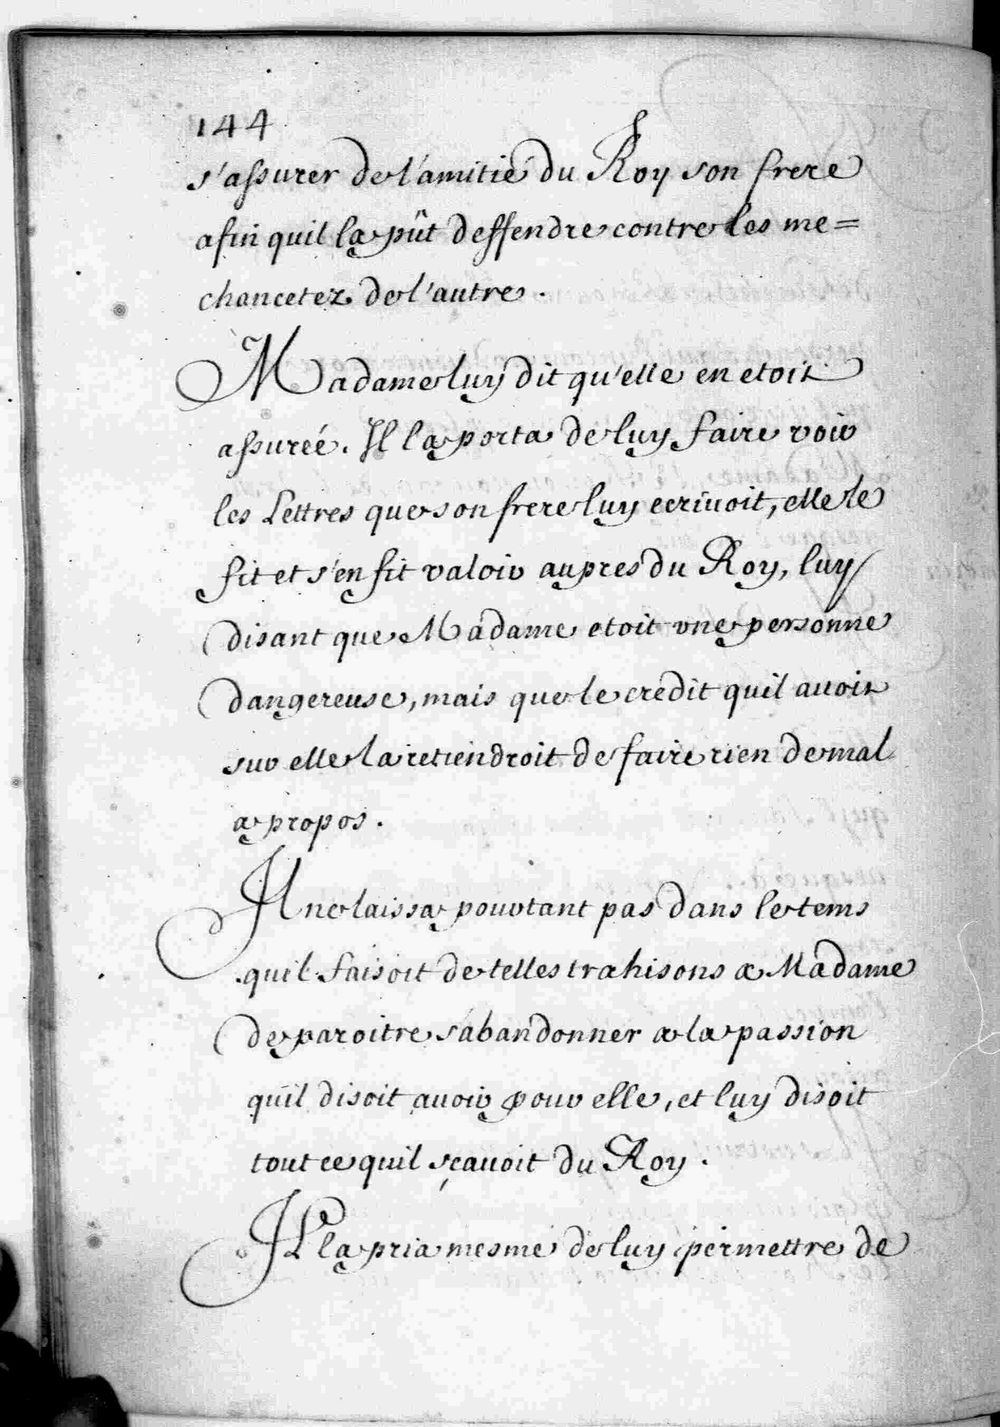 144
s'assurer de l'amitié du Roy son frere
afin quil la pût deffendre contre les me=
chancetez de l'autre.
Madame luy dit qu'elle en etoit
assurée. Il la porta de luy faire voir
les Lettres que son frere luy ecrivoit, elle le
fit et s'en fit valoir aupres du Roy, luy
disant que Madame etoit vne personne
dangereuse, mais que le credit quil auoit
sur elle la retiendroit de faire rien de mal
a propos.
Il ne laissa pourtant pas dans le tems
quil faisoit de telles trahisons a Madame
de paroitre s'abandonner a la passion
quil disoit auoir pour elle, et luy disoit
tout ce quil sçauoit du Roy.
Il la pria mesme de luy permettre de